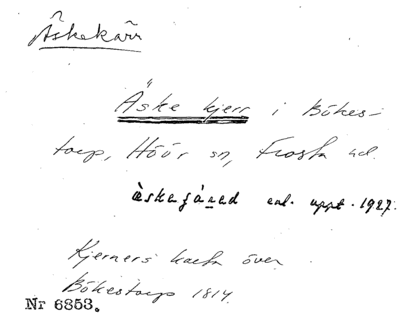 Äskekärr
Äske kjerr i Bökes-
torp, Höör sn, Frosta hd.
enl. uppt. 1927.
Kjerners karta över
Bökestorp 1814.
Nr 6853.